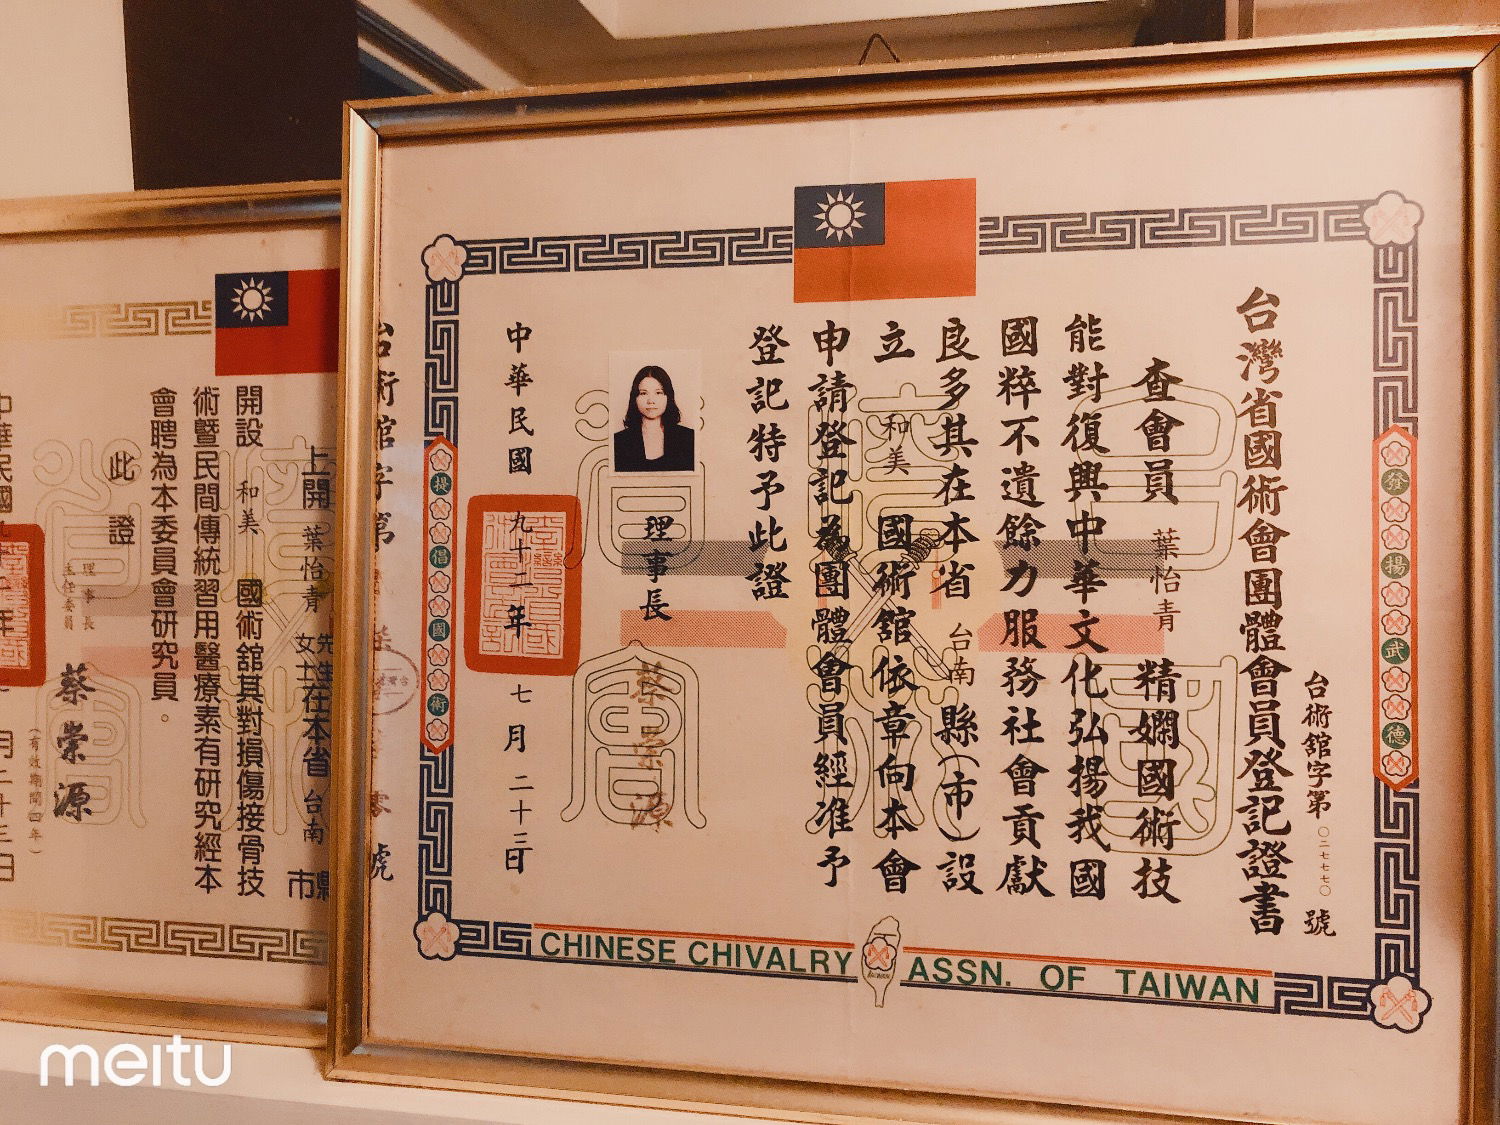 台灣省國術會團體會員登記證書
台術舘字第〇二七七七〇號
查會員 葉怡青 精嫻國術技
能對復興中華文化弘揚我國
國粹不遺餘力服務社會貢獻
良多其在本省 台南 縣(市)設
立 和美 國術舘依章向本會
申請登記為團體會員經准予
登記特予此證
理事長
蔡崇源
中華民國九十二年七月二十三日
發揚武德
提倡國術
CHINESE CHIVALRY ASSN. OF TAIWAN
台術舘字第
號
上開 葉怡青 先生女士在本省 台南 縣市
開設 和美 國術舘其對損傷接骨技
術暨民間傳統習用醫療素有研究經本
會聘為本委員會研究員。
此證
理事長
主任委員
蔡崇源
(有效期間四年)
meitu